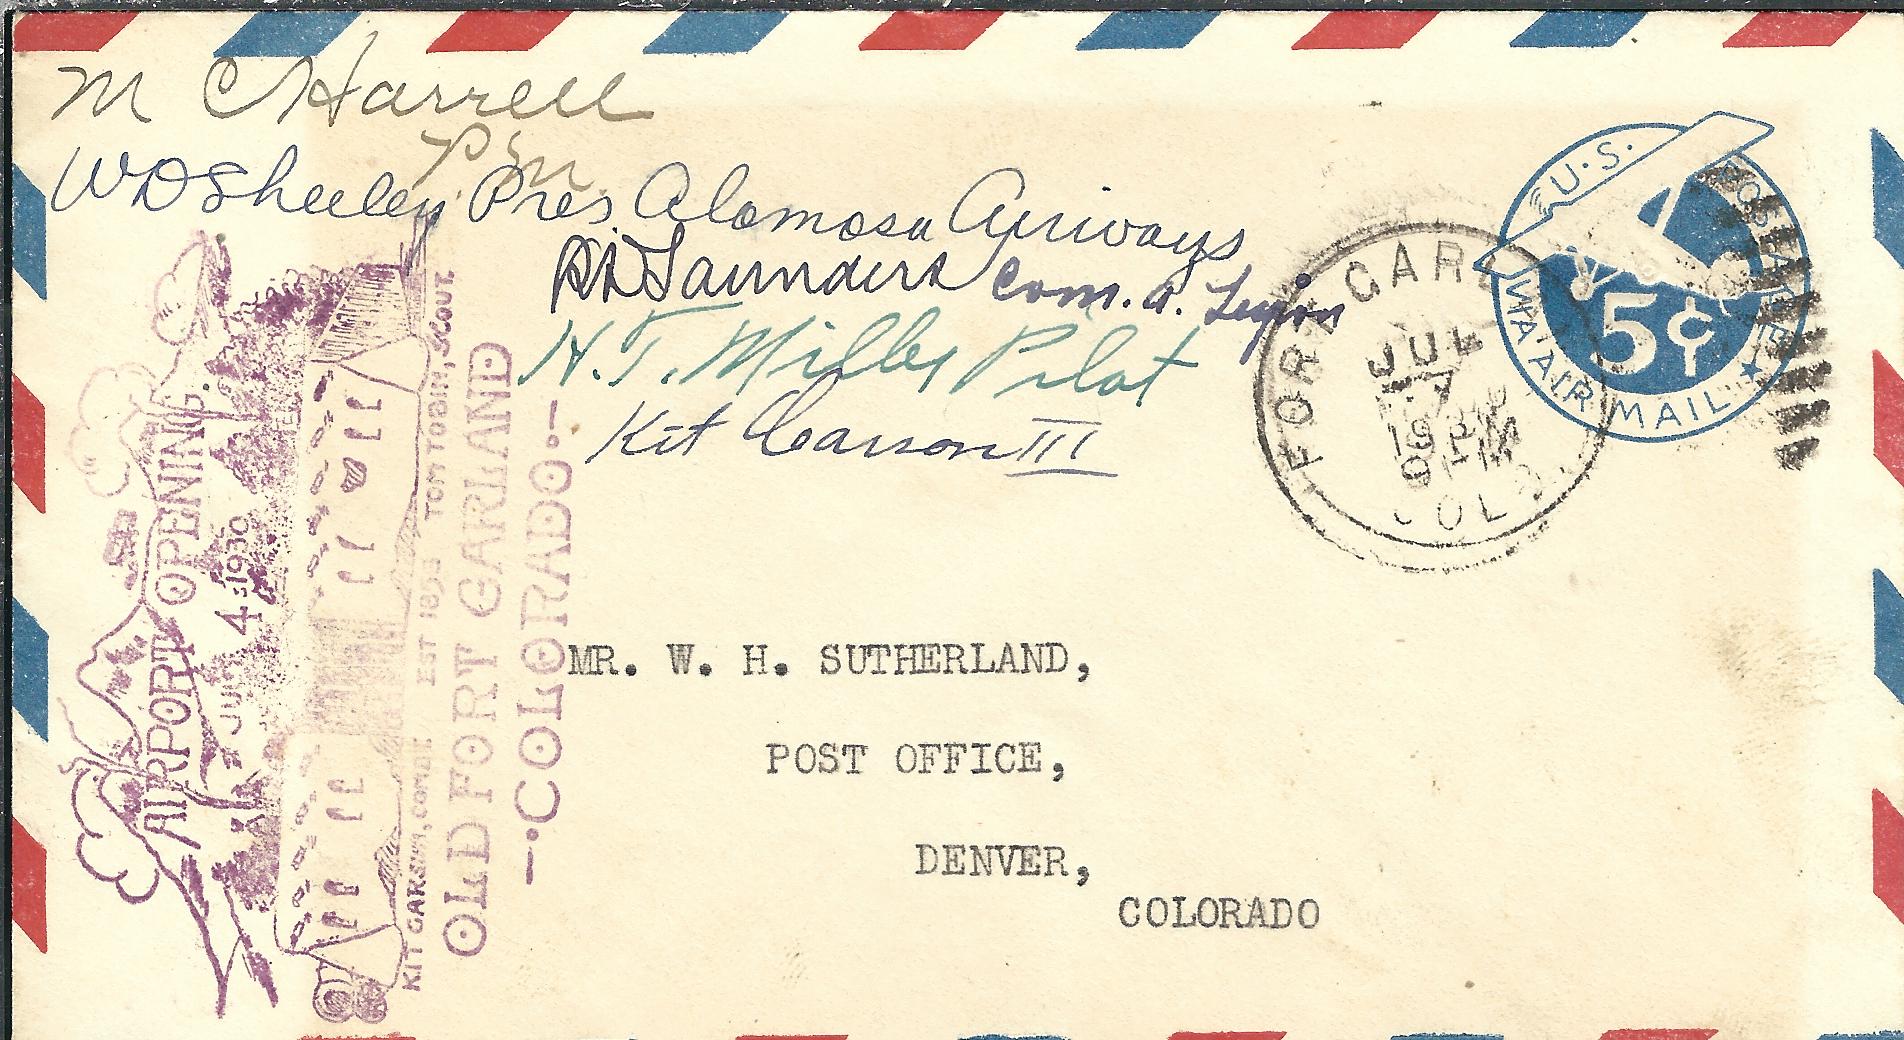 M C Harrell
P.M.
W D Sheeley Pres Alamosa Airways
Saunders Com. A. Legion
H. T. Miller Pilot
Kit Carson III
U.S. POSTAGE
5¢
VIA AIR MAIL
FORT GARL
JUL
7
1930
9 PM
COLO.
AIRPORT OPENING.
JULY 4TH 1930
KIT CARSON, COMDR EST 1858 TOM TOBIN, SCOUT.
OLD FORT GARLAND
—·COLORADO·—
MR. W. H. SUTHERLAND,
POST OFFICE,
DENVER,
COLORADO